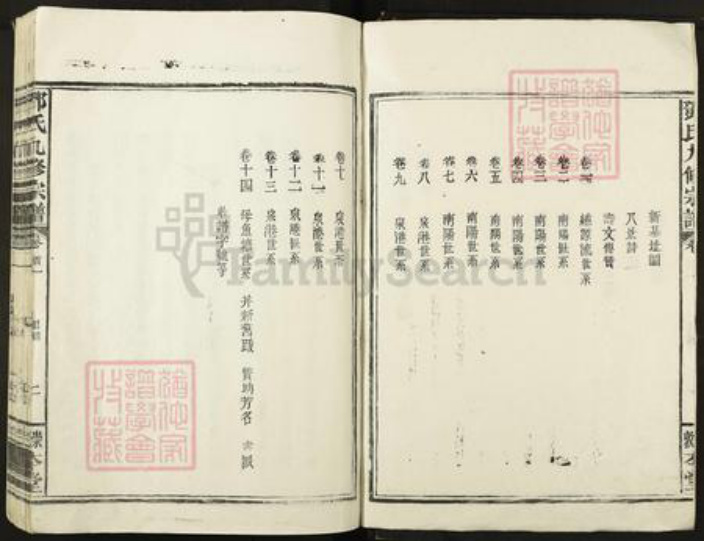 新基址圖
八景詩
壽文傳贊
總源流世系
卷二 南陽世系
卷三 南陽世系
卷四 南陽世系
卷五 南陽世系
卷六 南陽世系
卷七 南陽世系
卷八 泉港世系
卷九 泉港世系
卷十 泉港世系
卷十一 泉港世系
卷十二 泉港世系
卷十三 泉港世系
卷十四 世系 并新舊跋 贊助芳名
領譜字號
鄧氏九修宗譜
鄧氏九修宗譜
本堂
本堂
譜學會
特藏
譜學會
特藏
FamilySearch